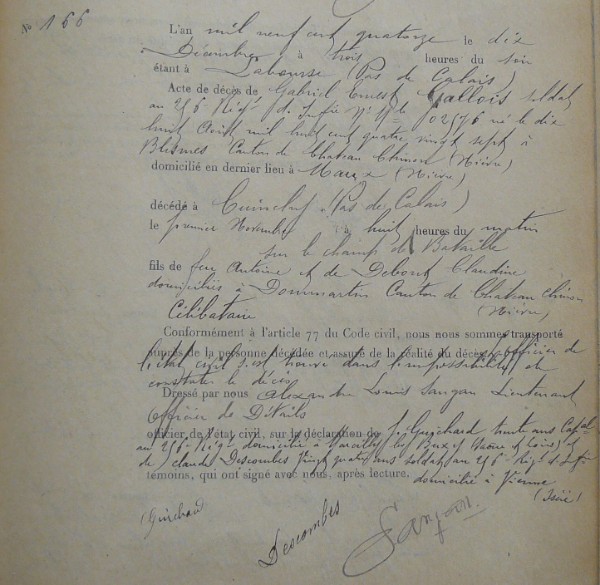 N° 166
L'an mil neuf cent quatorze le dix
Décembre à trois heures du soir
étant à Labourse (Pas de Calais)
Acte de décès de Gabriel Ernest Gallois soldat
au 256 Régt d'Infie N° Mle 02576 né le dix
huit Août mil huit cent quatre vingt sept à
Blismes Canton de Chateau Chinon (Nièvre)
domicilié en dernier lieu à (Nièvre)
décédé à Cuinchy (Pas de Calais)
le premier Novembre à huit heures du matin
sur le champ de Bataille
fils de feu Antoine et de Debout Claudine
domiciliés à Dommartin Canton de Chateau Chinon
Célibataire (Nièvre)
Conformément à l'article 77 du Code civil, nous nous sommes transporté
auprès de la personne décédée et assuré de la réalité du décès officier de
l'état civil s'est trouvé dans l'impossibilité de
constater le décès
Dressé par nous Alexandre Louis Sangan Lieutenant
Officier de Détails
officier de l'état civil, sur la déclaration de Guichard trente ans Capal
au 256 Régt domicilié à (Saône et Loire) et
de Claude Descombes Vingt quatre ans soldat au 256 Régt
témoins, qui ont signé avec nous, après lecture, domicilié à Vienne
(Isère)
Guichard
Descombes